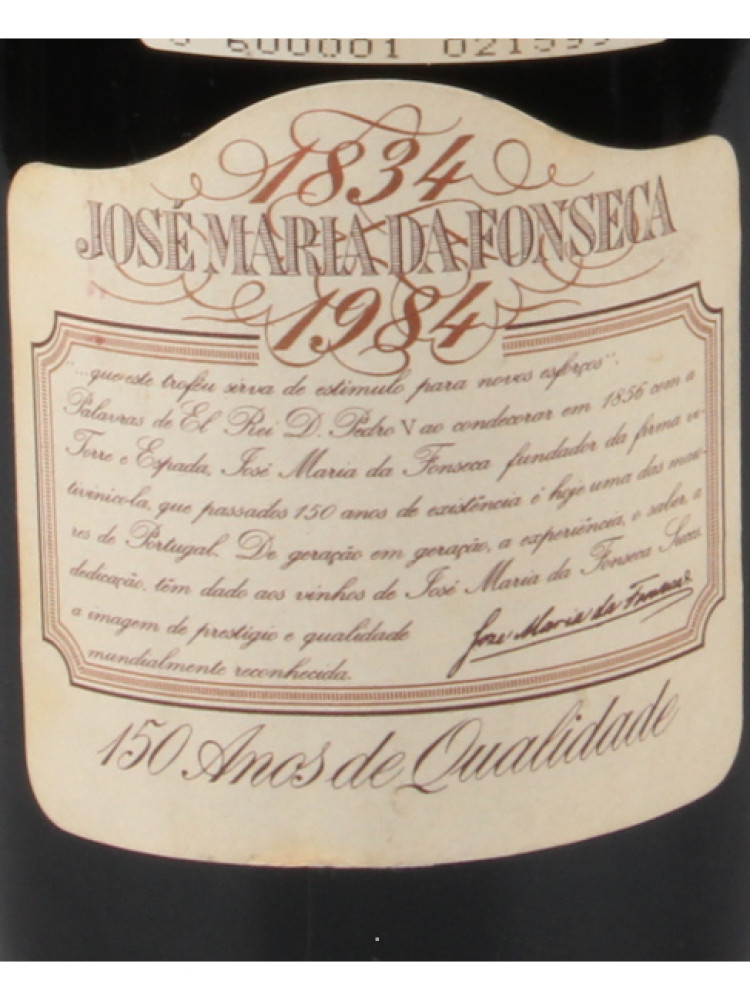 600001 02159
1834
JOSÉ MARIA DA FONSECA
1984
"...que este troféu sirva de estimulo para novos esforços".
Palavras de El Rei D. Pedro V ao condecorar em 1856 com a
Torre e Espada, José Maria da Fonseca fundador da firma vi-
tivinicola, que passados 150 anos de existência é hoje uma das maio-
res de Portugal. De geração em geração, a experiência, o saber, a
dedicação, têm dado aos vinhos de José Maria da Fonseca Succs.
a imagem de prestigio e qualidade
mundialmente reconhecida.
José Maria da Fonseca
150 Anos de Qualidade